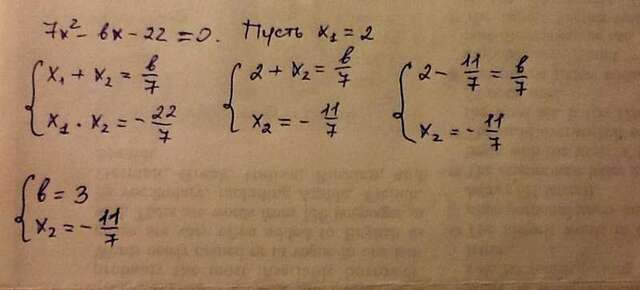 7x² - bx - 22 = 0. Пусть x₁ = 2
{ x₁ + x₂ = b/7
x₁ · x₂ = - 22/7
{ 2 + x₂ = b/7
x₂ = - 11/7
{ 2 - 11/7 = b/7
x₂ = - 11/7
{ b = 3
x₂ = - 11/7